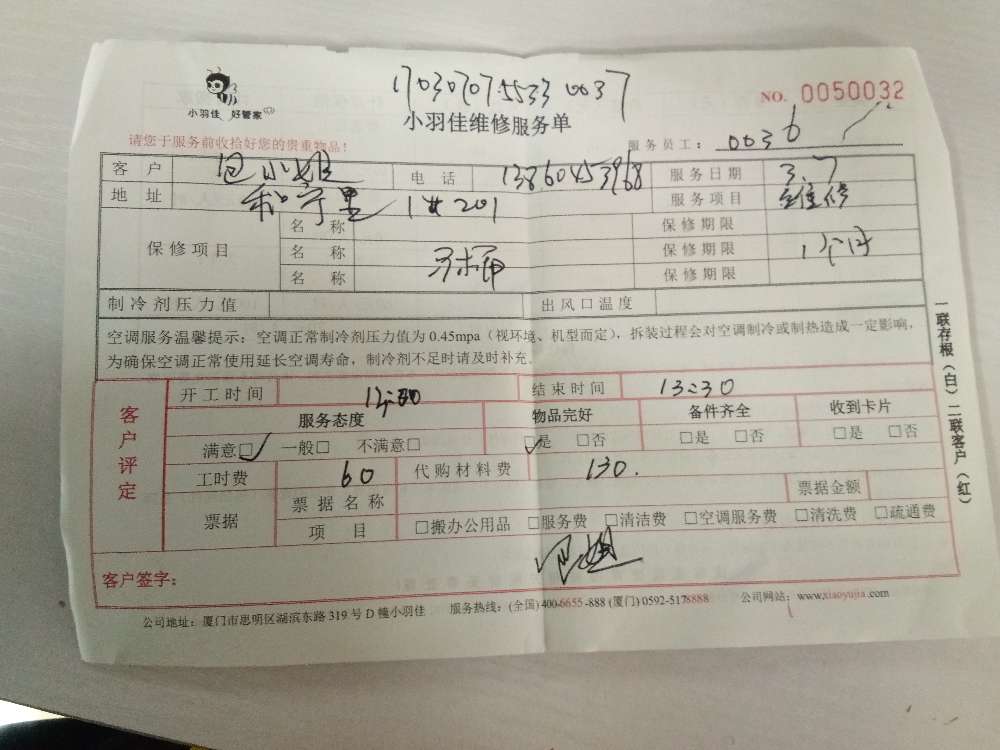 1703070755330037
小羽佳 好管家
NO. 0050032
小羽佳维修服务单
请您于服务前收拾好您的贵重物品!
服务员工: 0036
客户 包小姐 电话 13860453968 服务日期 3.7
地址 和宁里 1# 201 服务项目 维修
名称 保修期限
保修项目 名称 马桶 保修期限 1个月
名称 保修期限
制冷剂压力值 出风口温度
空调服务温馨提示:空调正常制冷剂压力值为0.45mpa(视环境、机型而定),拆装过程会对空调制冷或制热造成一定影响,
为确保空调正常使用延长空调寿命,制冷剂不足时请及时补充.
一联存根(白)二联客户(红)
客户评定
开工时间 结束时间 13:30
服务态度 物品完好 备件齐全 收到卡片
满意□ 一般□ 不满意□ □是 □否 □是 □否 □是 □否
工时费 60 代购材料费 130.
票据 票据名称 票据金额
项目 □搬办公用品 □服务费 □清洁费 □空调服务费 □清洗费 □疏通费
客户签字:
公司地址:厦门市思明区湖滨东路319号D幢小羽佳 服务热线:(全国)400-6655-888(厦门)0592-5178888 公司网站:www.xiaoyujia.com